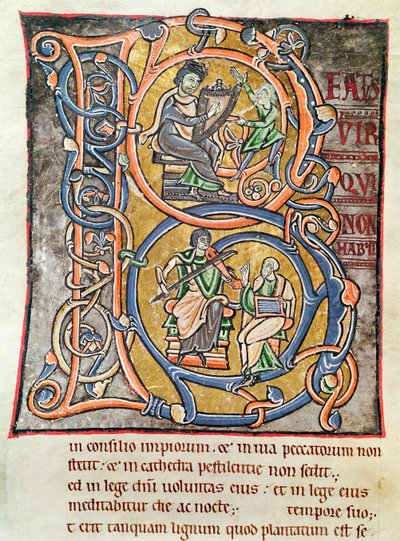 BEATS
VIR
QVI
NON
in consilio impiorum. & in uia peccatorum non
stetit: & in cathedra pestilentie non sedit.;
ed in lege dñi uoluntas eius: et in lege eius
meditabitur die ac nocte; tempore suo;
t erit tanquam lignum quod plantatum est se